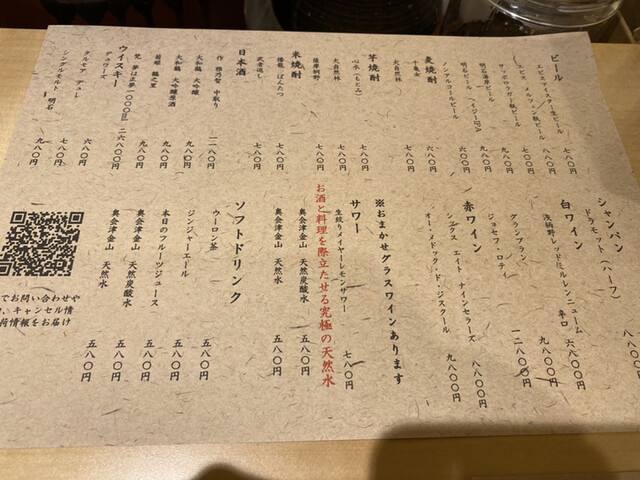 ビール
エビスマイスター生ビール 七八〇円
エビス メルツェン瓶ビール 八八〇円
サッポロラガー瓶ビール 七八〇円
明石海岸ビール ヘイジーIPA 九八〇円
明石ビール 九八〇円
ノンアルコールビール 六〇〇円
麦焼酎
十亀金 六八〇円
大自然林 七八〇円
芋焼酎
心水(もとみ) 七八〇円
大自然林
薩摩 七八〇円
米焼酎
播磨 ほんたつ 七八〇円
武者返し 七八〇円
日本酒
作 雅乃智 中取り 一二八〇円
大和鶴 大吟醸 九八〇円
大和鶴 大吟醸原酒 九八〇円
龍之里 九八〇円
梵 夢は正夢 1000ml 二六八〇〇円
ウイスキー
デュワーズ
タルセア デュレ 六八〇円
シングルモルト 明石 七八〇円
九八〇円
シャンパン
ドラモット(ハーフ) 八八〇〇円
白ワイン
浅柄野レッドミルレンニューム 辛口 六八〇〇円
九八〇〇円
グランブラン
ジョセフ・ロティ 一二八〇〇円
赤ワイン
シックス エイト ナインセラーズ 八八〇〇円
オー・メドック・ド・ジスクール 九八〇〇円
※おまかせグラスワインあります
サワー
生絞りメイヤーレモンサワー 七八〇円
お酒と料理を際立たせる究極の天然水
奥会津金山 天然炭酸水 五八〇円
奥会津金山 天然水 五八〇円
ソフトドリンク
ウーロン茶 五八〇円
ジンジャーエール 五八〇円
本日のフルーツジュース 五八〇円
奥会津金山 天然炭酸水 五八〇円
奥会津金山 天然水 五八〇円
でお問い合わせや
、キャンセル情
荷情報をお届け